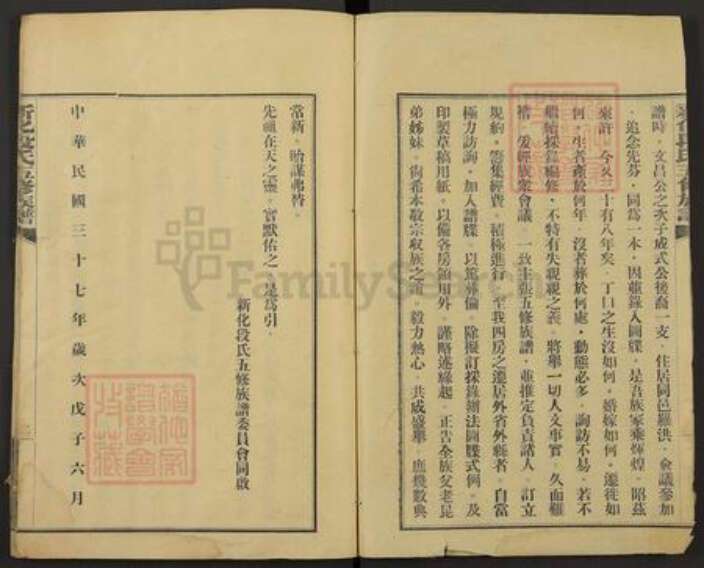 譜時。文昌公之次子成式公後裔一支。住居同邑羅洪。僉議參加
。追念先芬。同為一本。因並錄入圖牒。是吾族家乘輝煌。昭茲
來許。今久三十有八年矣。丁口之生沒如何。婚嫁如何。遷徙如
何。生者產於何年。沒者葬於何處。動態必多。詢訪不易。若不
繼始採錄編修。不特有失親親之義。將舉一切人文事實。久而難
稽。爰經族眾會議。一致主張五修族譜。並推定負責諸人。訂立
規約。籌集經費。積極進行。至我四房之遷居外省外縣者。自當
極力訪詢。加入譜牒。以篤彝倫。除擬訂採錄辦法圖牒式例。及
印製草稿用紙。以備各房領用外。謹略述緣起。正告全族父老昆
弟姊妹。尚希本敬宗收族之道。毅力熱心。共成盛舉。庶幾數典
常新。貽謀弗替。
先祖在天之靈。實默佑之。是為引。
新化段氏五修族譜委員會同啟
中華民國三十七年歲次戊子六月
新化段氏五修族譜
FamilySearch